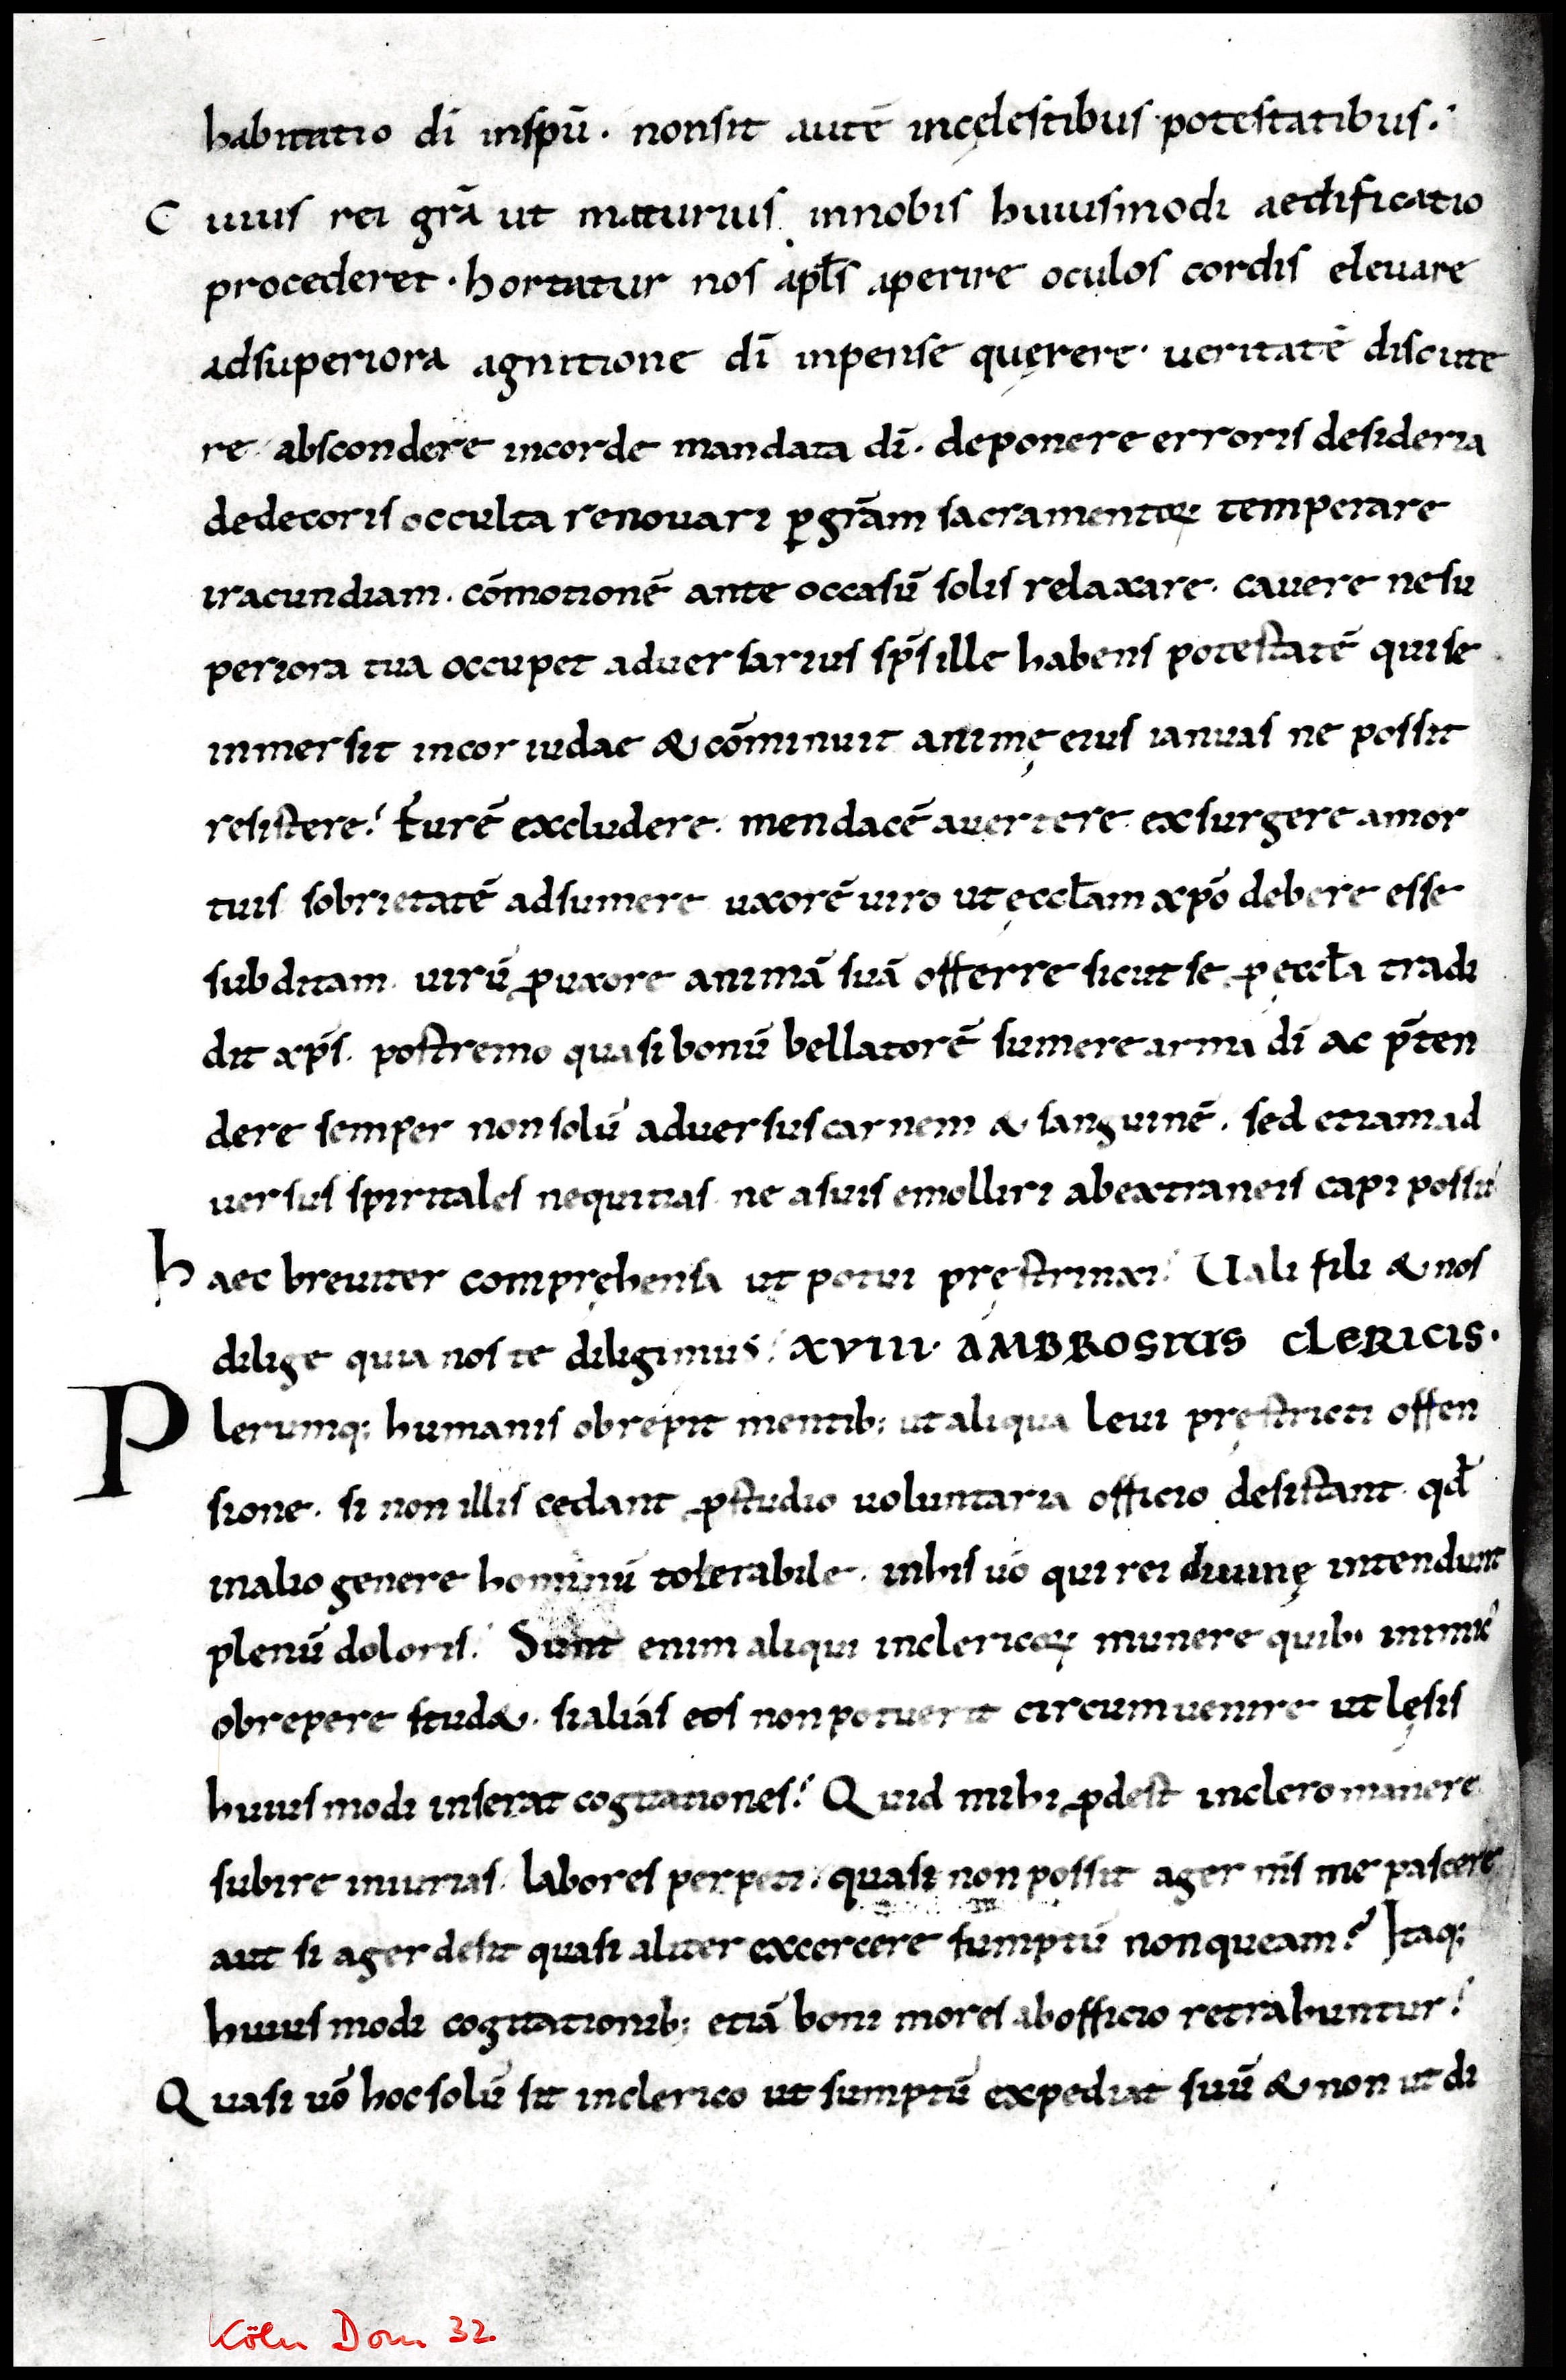 habitatio dī inspū. nonsit autē incęlestibus potestatibus.
Cuius rei grā ut maturius innobis huiusmodi aedificatio
procederet. hortatur nos apłs aperire oculos cordis eleuare
adsuperiora agnitione dī inpense quęrere. ueritatē discute
re abscondere incorde mandata dī. deponere erroris desideria
dedecoris occulta renouari ꝑ grām sacramentoꝝ temperare
iracundiam. cōmotionē ante occasū solis relaxare. cauere nesu
periora tua occupet aduersarius sp̄s ille habens potestatē qui se
inmersit incor iudae & cōminuit animę eius ianuas ne possit
resistere. furē excludere. mendacē auertere exsurgere amor
tuis sobrietatē adsumere uxorē uiro ut ęccłam xp̄o debere esse
subditam. uirū ꝓuxore animā suā offerre sicut se ꝓ ęccła tradi
dit xp̄s. postremo quasi bonū bellatorē sumere arma dī ac p̄ten
dere semper non solū aduersus carnem & sanguinē. sed etiam ad
uersus spiritales nequitias ne asuis emolliri abextraneis capi possū
haec breuiter compręhensa ut potui pręstrinxi. Uali fili & nos
dilige quia nos te diligimus. XVIII. AMBROSIUS CLERICIS.
Plerumq; humanis obrepit mentib; ut aliqua leui pręstricti offen
sione. si non illis cedant ꝓstudio uoluntaria officio desistant. qđ
inalio genere hominū tolerabile. inhis uō qui rei diuinę intendunt
plenū doloris. Sunt enim aliqui inclericoꝝ munere quib; inimic'
obrepere stud&. si aliás eos non potuerit circumuenire ut lęsis
huiusmodi inserat cogitationes. Quid mihi ꝓdest inclero manere
subire iniurias. labores perpeti. quasi non possit ager m̄s me pascere
aut si ager desit quasi aliter excercere sumptū non queam? Itaq;
huiusmodi cogitationib; etiā boni mores abofficio retrahuntur.
Quasi uō hoc solū sit inclerico ut sumptū expediat suū & non ut di
Köln Dom 32.